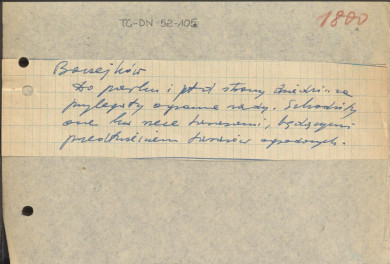 TG-DN-52-105
1800
Do parku i pd strony
przylegały ogromne sady. Schodziły
one ku rzece tarasami, będącymi
przedłużeniem tarasów ogrodowych.